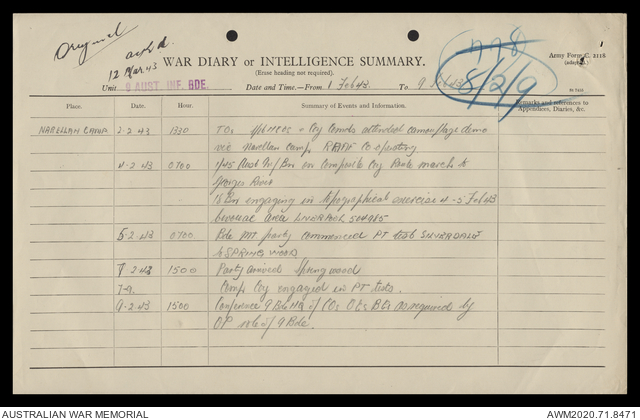 Original
12 Mar 43
778
8/2/9
1
WAR DIARY or INTELLIGENCE SUMMARY.
(Erase heading not required).
Army Form C. 2118
Unit 9 AUST. INF. BDE. Date and Time.—From 1 Feb 43 To 9 Feb 43
Place. Date. Hour. Summary of Events and Information. Remarks and references to Appendices, Diaries, &c.
NARELLAN CAMP 2-2-43 1330 & Coy Comds attended camouflage demo
via Narellan Camp RAAF Co operating
4-2-43 0700 1/45 Aust Inf Bn on Composite Coy Route march to
Georges River
Bn engaging in topographical exercise 4-5 Feb 43
bivouac area LIVERPOOL 504915
5-2-43 0700 Bde party commenced PT test SILVERDALE
to SPRINGWOOD
7-2-43 1500 Party arrived Springwood
7-9. Comp Coy engaged in PT tests.
9-2-43 1500 Conference 9 Bde HQ of COs as required by
OP role of 9 Bde.
AUSTRALIAN WAR MEMORIAL
AWM2020.71.8471